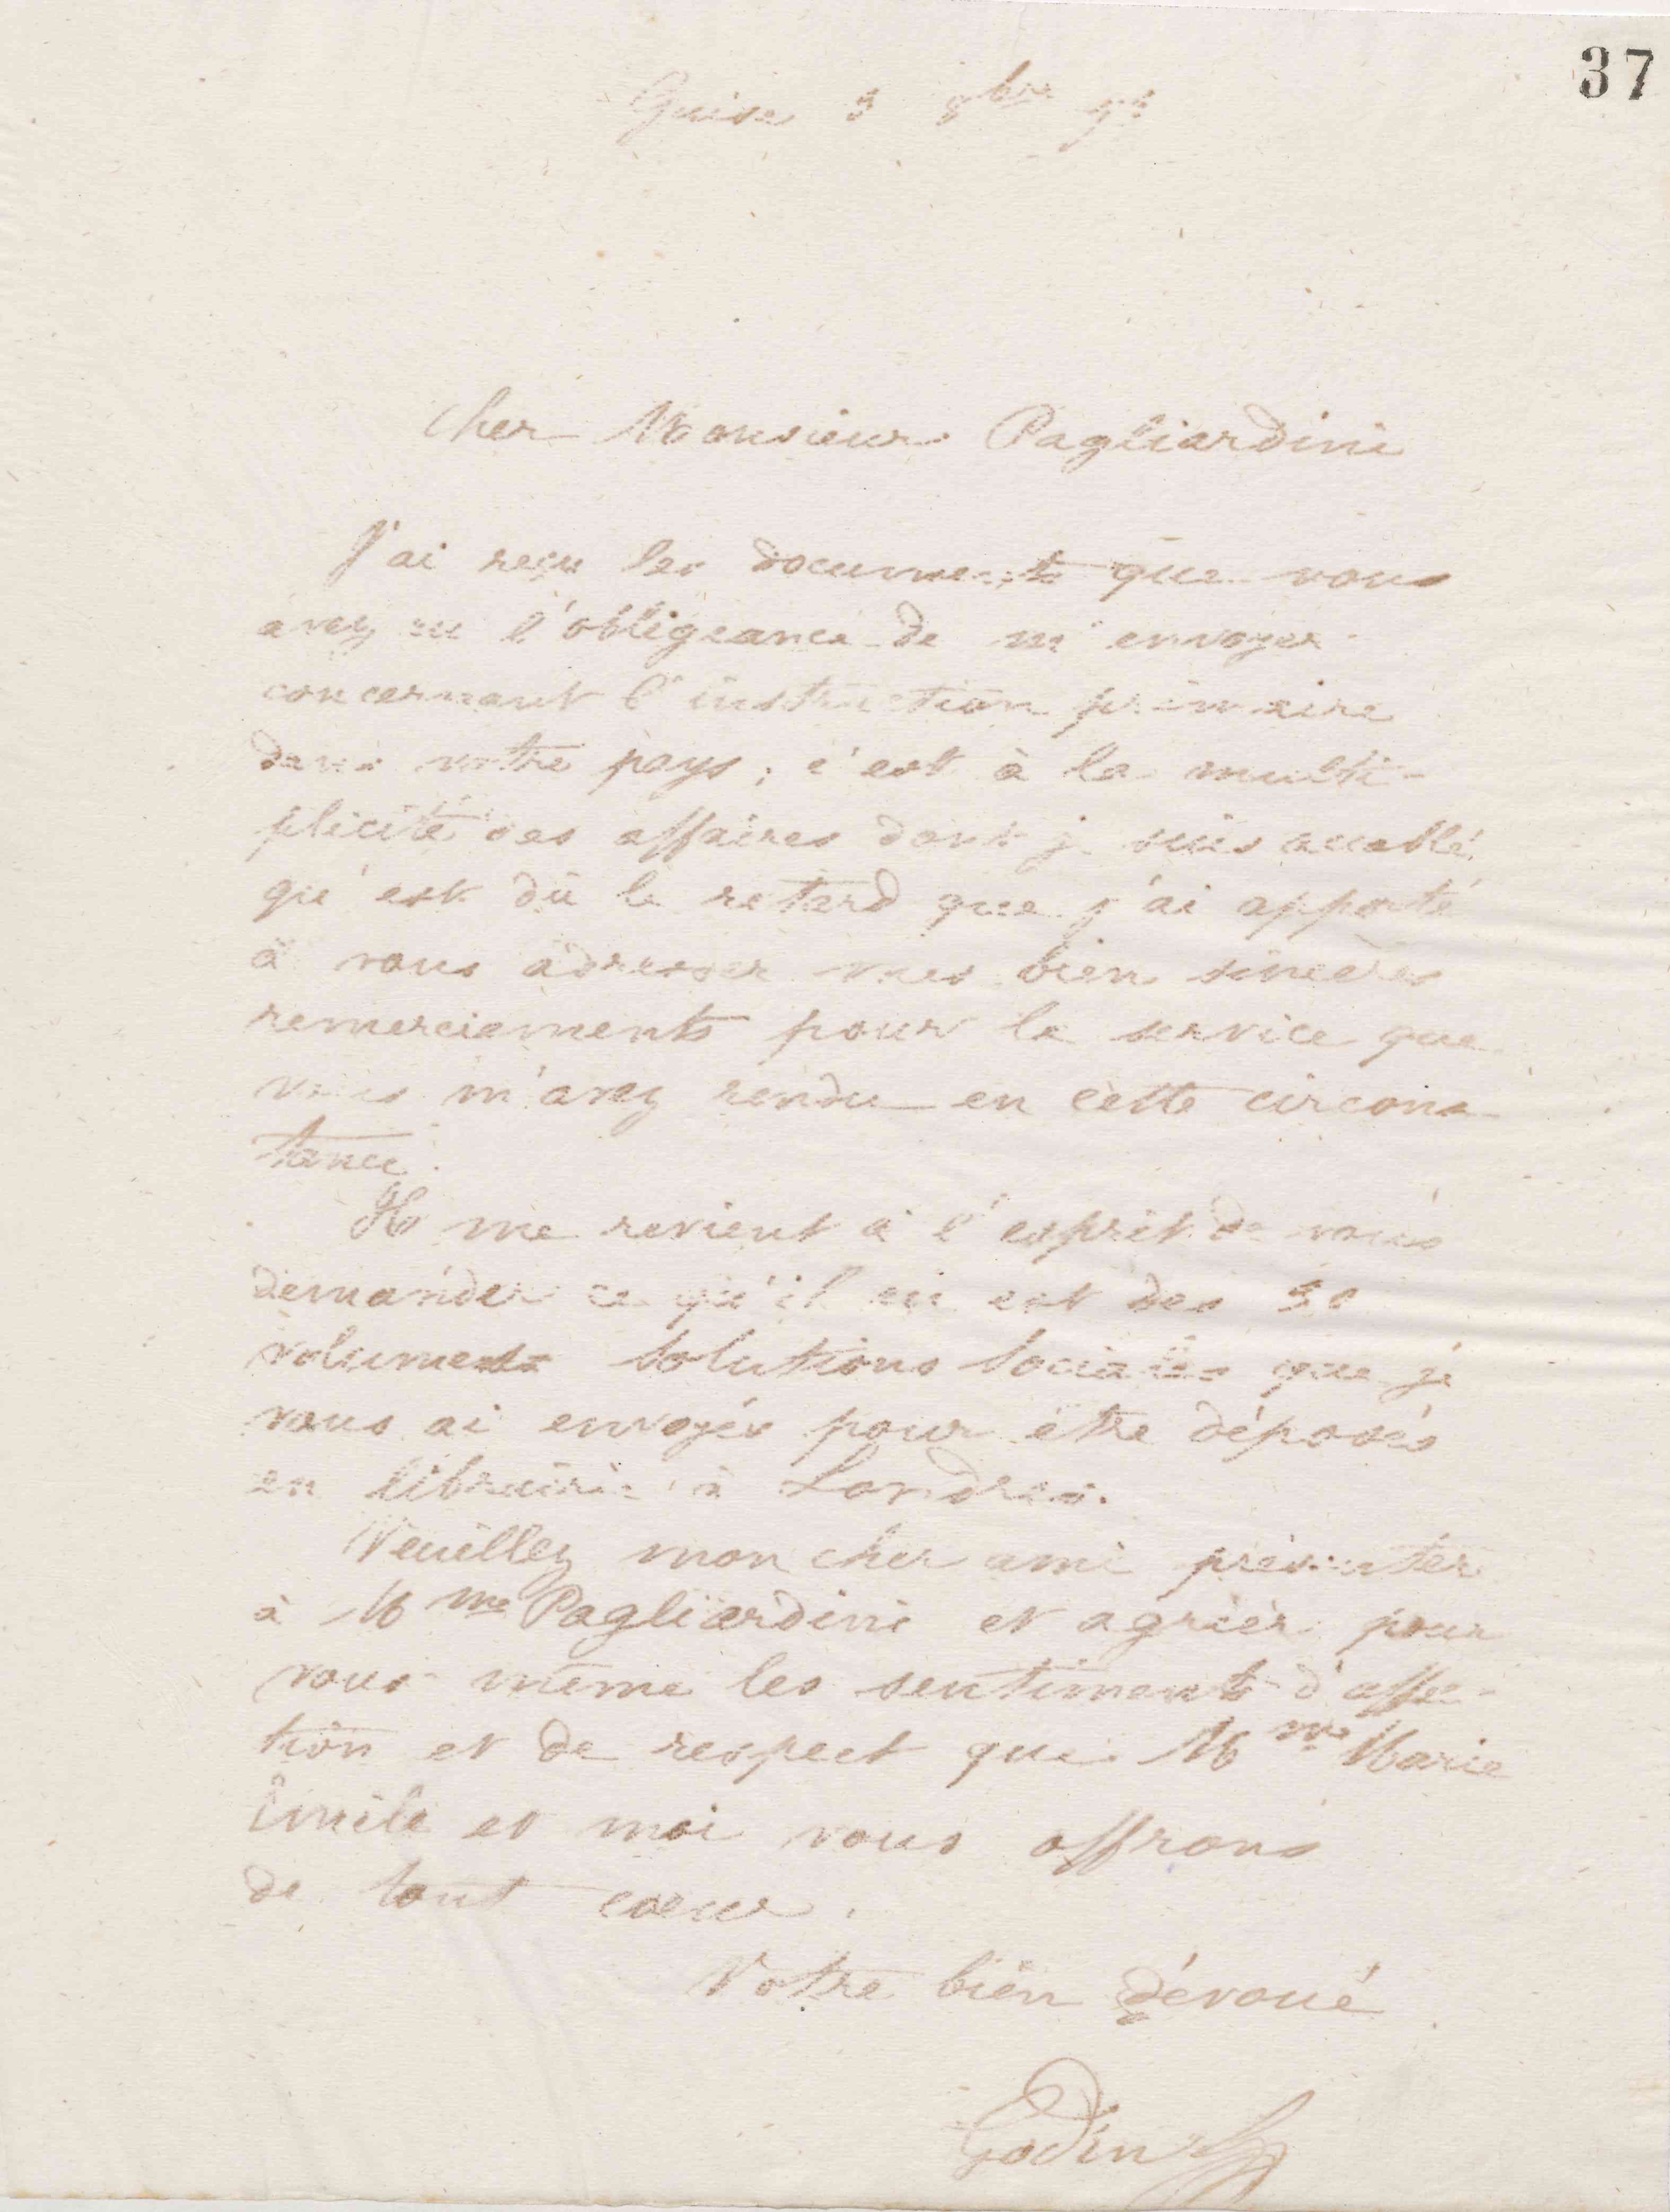 37
Guise 3 8bre
Cher Monsieur Pagliardini
J'ai reçu les documents que vous
avez eu l'obligeance de m'envoyer
concernant l'instruction primaire
dans votre pays ; c'est à la multi-
plicité des affaires dont je suis accablé
qu'est dû le retard que j'ai apporté
à vous adresser mes bien sincères
remerciements pour le service que
vous m'avez rendu en cette circons-
tance.
Il me revient à l'esprit de vous
demander ce qu'il en est des
volumes Solutions Sociales que je
vous ai envoyés pour être déposés
en librairie à Londres.
Veuillez mon cher ami présenter
à Mme Pagliardini et agréer pour
vous même les sentiments d'affec-
tion et de respect que Mme Marie
Émile et moi vous offrons
de tout coeur.
Votre bien dévoué
Godin